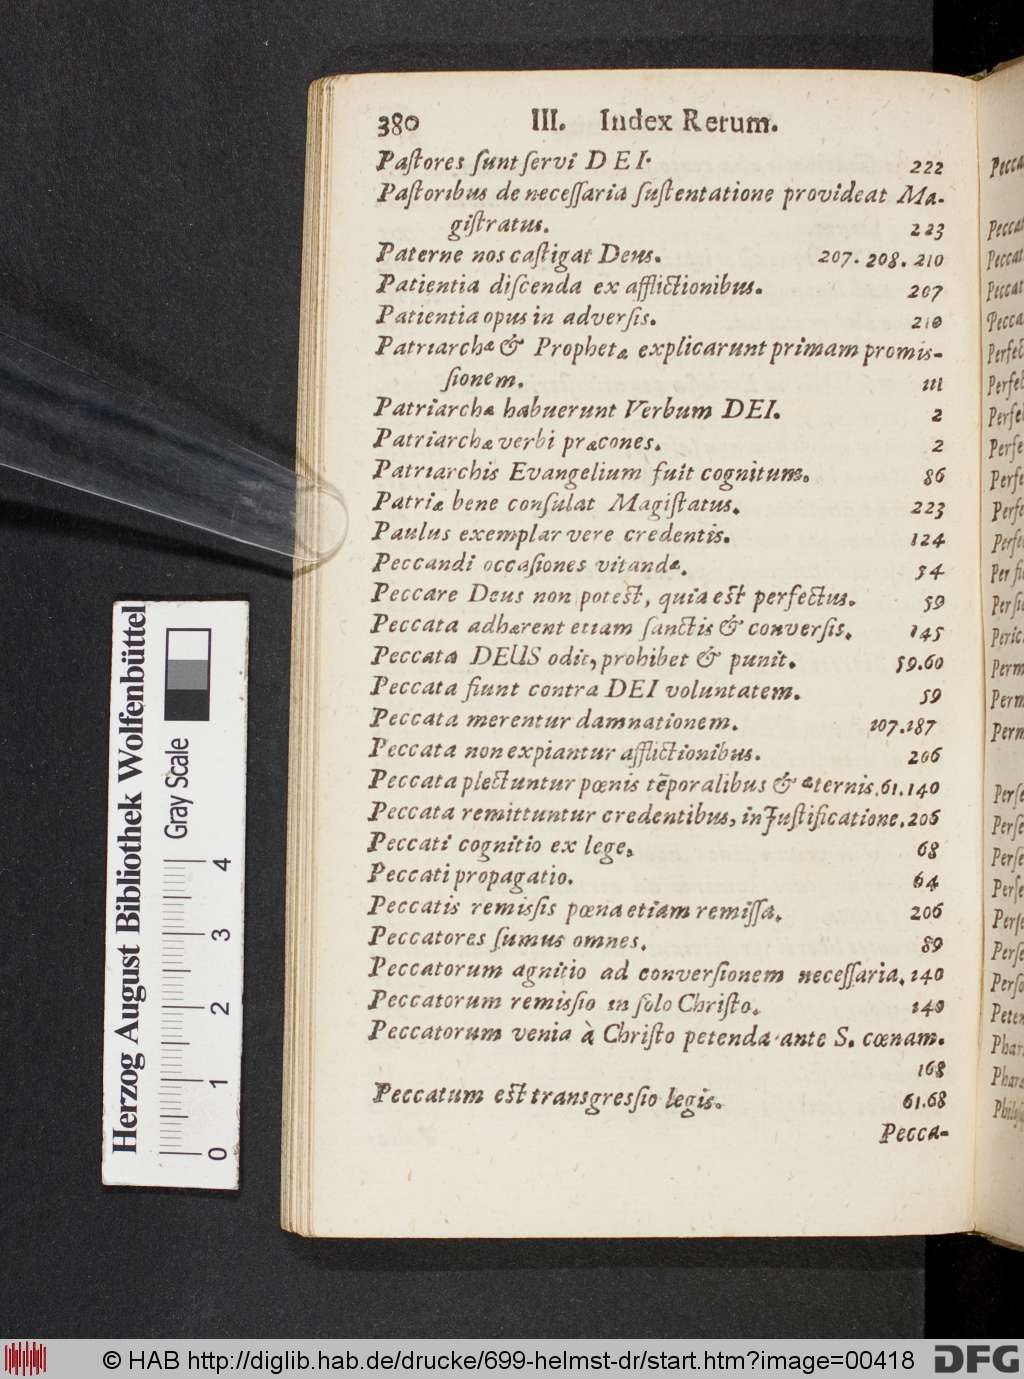 380 III. Index Rerum.
Paſtores ſunt ſervi DEI. 222
Paſtoribus de neceſſaria ſuſtentatione provideat Ma-
giſtratus. 223
Paterne nos caſtigat Deus. 207. 208. 210
Patientia diſcenda ex afflictionibus. 207
Patientia opus in adverſis. 210
Patriarchæ & Prophetæ explicarunt primam promis-
ſionem. 111
Patriarchæ habuerunt Verbum DEI. 2
Patriarchæ verbi præcones. 2
Patriarchis Evangelium fuit cognitum. 86
Patriæ bene conſulat Magiſtatus. 223
Paulus exemplar vere credentis. 124
Peccandi occaſiones vitandæ. 34
Peccare Deus non potest, quia est perfectus. 59
Peccata adhærent etiam ſanctis & converſis. 145
Peccata DEUS odit, prohibet & punit. 59.60
Peccata fiunt contra DEI voluntatem. 59
Peccata merentur damnationem. 107.187
Peccata non expiantur afflictionibus. 206
Peccata plectuntur pœnis tēporalibus & æternis. 61.140
Peccata remittuntur credentibus, in Juſtificatione. 206
Peccati cognitio ex lege. 68
Peccati propagatio. 64
Peccatis remisſis pœna etiam remiſſa. 206
Peccatores ſumus omnes. 89
Peccatorum agnitio ad converſionem neceſſaria. 140
Peccatorum remisſio in ſolo Chriſto. 140
Peccatorum venia à Chriſto petenda ante S. cœnam.
168
Peccatum est transgresſio legis. 61.68
Pecca-
Herzog August Bibliothek Wolfenbüttel
Gray Scale
0 1 2 3 4
© HAB http://diglib.hab.de/drucke/699-helmst-dr/start.htm?image=00418
DFG